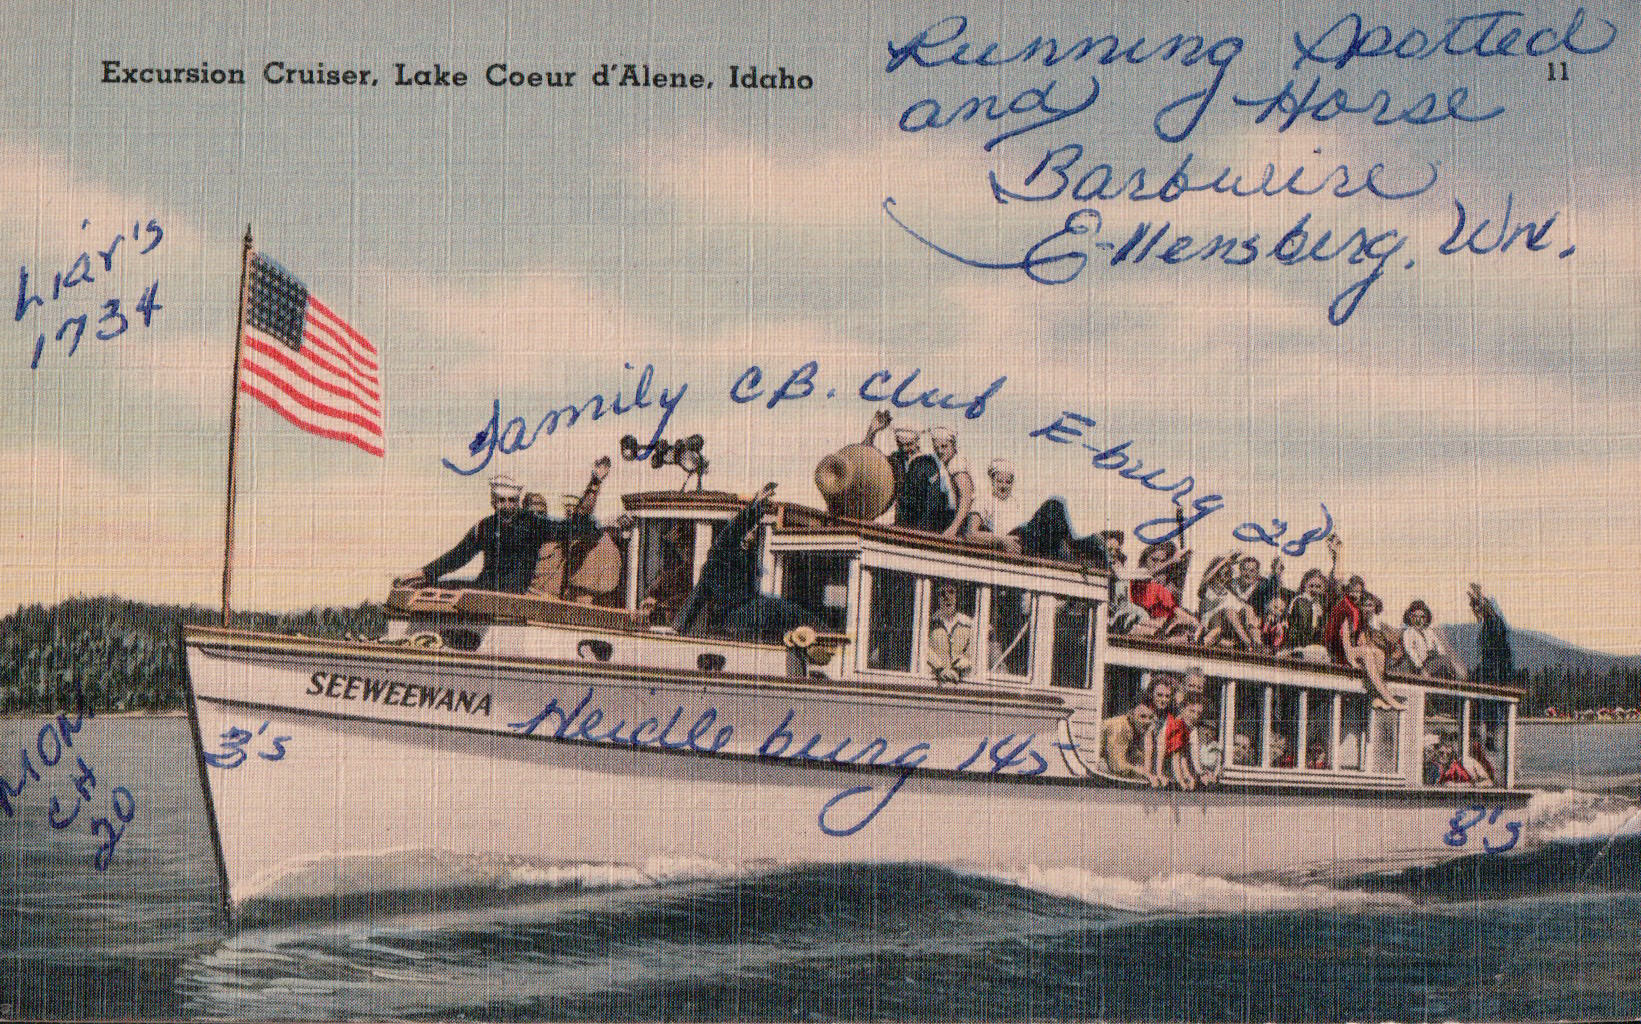 Excursion Cruiser, Lake Coeur d'Alene, Idaho
11
Running Spotted
and Horse
Barbwire
E-llensburg, Wn.
Liar's
1734
Family CB. Club E-burg 28
SEEWEEWANA
3's
Heidleburg 145
8's
MON
CH
20